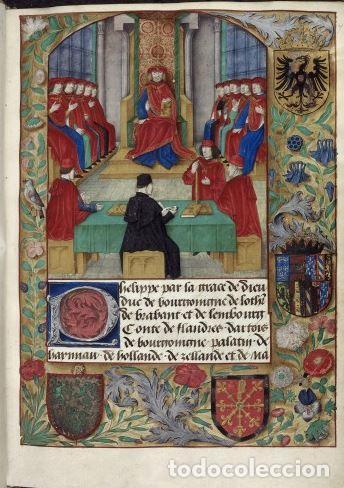 Phelippe par la grace de dieu
duc de bourgoingne de loth.
de brabant et de lembourg
Conte de flandres dartois
de bourgoingne palatin de
haynnau de hollande de zellande et de na
todocoleccion